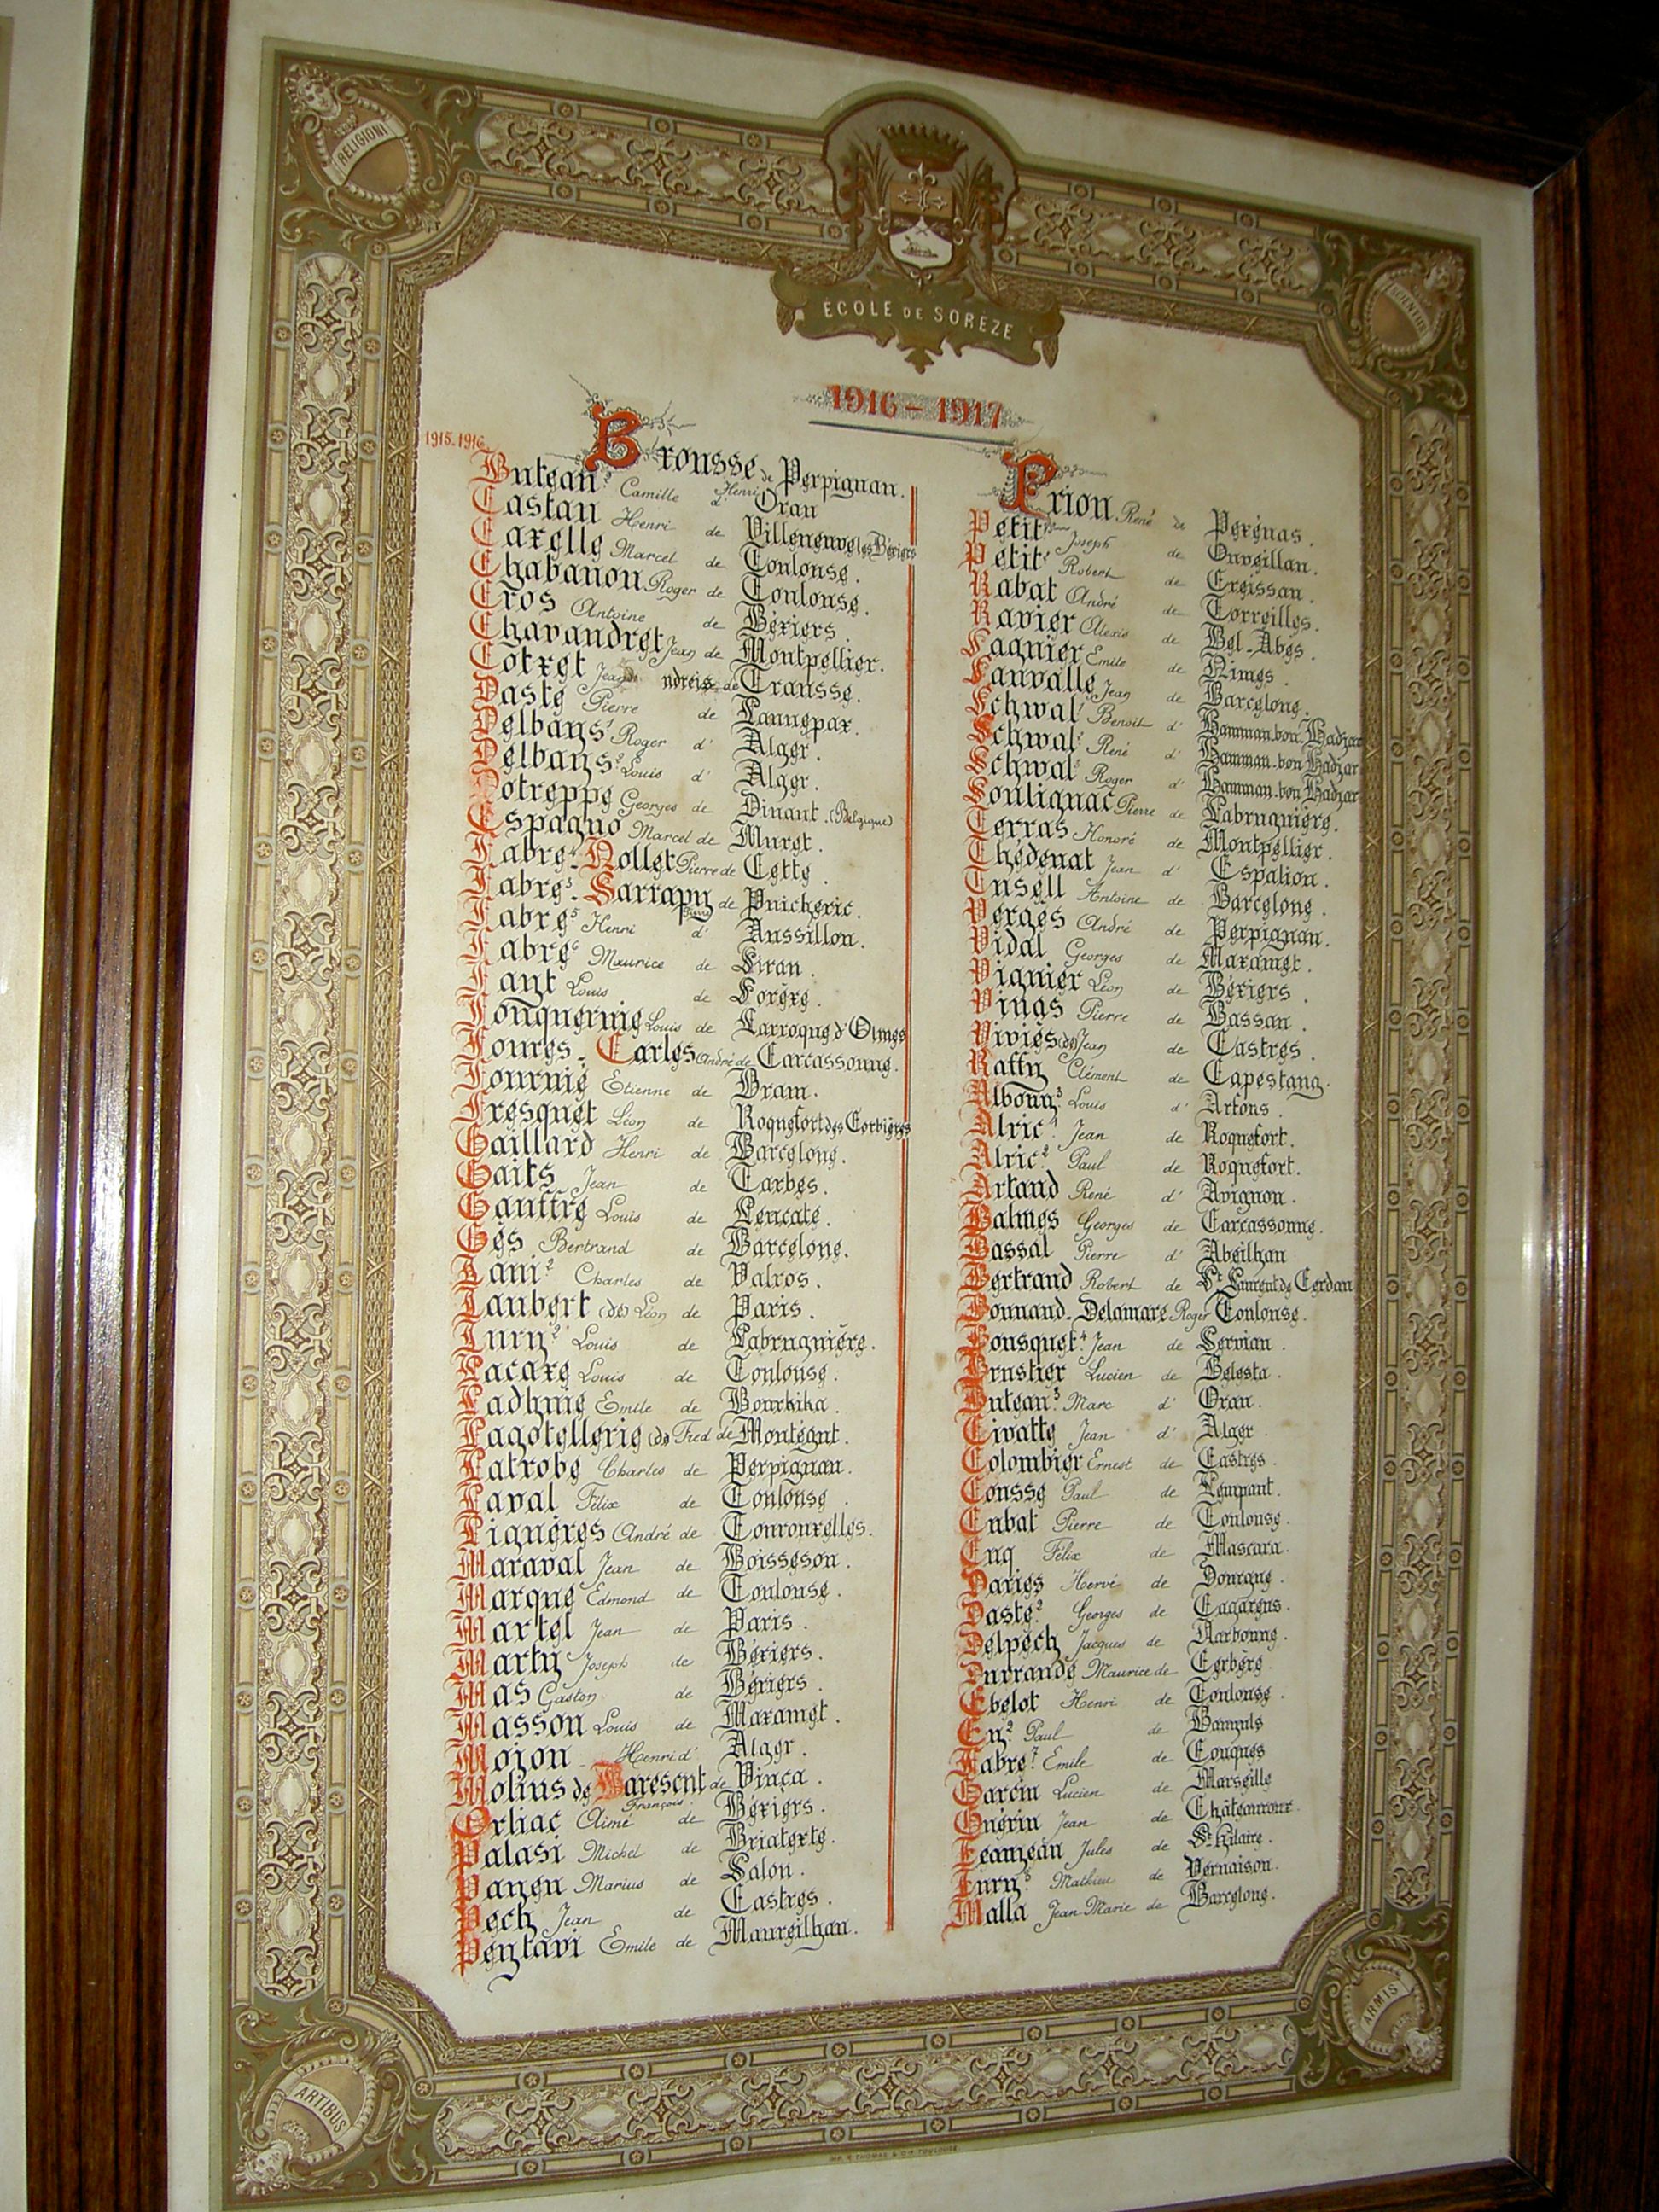 RELIGIONI
SCIENTIÆ
ÉCOLE DE SOREZE
1916 – 1917
1915-1916
Brousse Henri de Perpignan.
Buteau² Camille d' Oran
Castan Henri de Villeneuve les Béziers
Cazelle Marcel de Toulouse.
Chabanon Roger de Toulouse.
Cros Antoine de Béziers.
Chavandret Jean de Montpellier.
Cotxet Jean de Trausse.
Daste Pierre de Lannepax.
Delbays¹ Roger d' Alger.
Delbays² Louis d' Alger.
Dotreppe Georges de Dinant. (Belgique)
Espagno Marcel de Muret.
Fabre⁴-Nollet Pierre de Cette.
Fabre³-Sarrapy de Puicheric.
Fabre⁵ Henri d' Aussillon.
Fabre⁶ Maurice de Siran.
Fant Louis de Sorèze.
Fonquernie Louis de Larroque d'Olmes
Foures-Carles André de Carcassonne.
Fournié Etienne de Bram.
Fresquet Léon de Roquefort des Corbières
Gaillard Henri de Barcelone.
Gaits Jean de Tarbes.
Gauffre Louis de Leucate.
Ges Bertrand de Barcelone.
Jani² Charles de Valros.
Jaubert (de) Léon de Paris.
Jury² Louis de Labruguière.
Lacaze Louis de Toulouse.
Ladhuie Emile de Bourkika.
Lagotellerie (de) Fred de Montégut.
Latrobe Charles de Perpignan.
Laval Félix de Toulouse.
Lignères André de Tourouzelles.
Maraval Jean de Boissezon.
Marque Edmond de Toulouse.
Martel Jean de Paris.
Marty Joseph de Béziers.
Mas Gaston de Béziers.
Masson Louis de Mazamet.
Mojon Henri d' Alger.
Molins de Baresent François de Vinça.
Orliac Aimé de Béziers.
Palasi Michel de Briatexte.
Paneu Marius de Salon.
Pech Jean de Castres.
Peytavi Emile de Maureilhan.
Prion René de Pézénas.
Petit Joseph de Ouveillan.
Petit² Robert de Creissan.
Rabat André de Torreilles.
Ravier Alexis de Bel-Abès.
Sagnier Emile de Nîmes.
Sauvalle Jean de Barcelone.
Schwal¹ Benoit d' Hamman-bou-Hadjar
Schwal² René d' Hamman-bou-Hadjar
Schwal³ Roger d' Hamman-bou-Hadjar
Soulignac Pierre de Labruguière.
Terras Honoré de Montpellier.
Thédenat Jean d' Espalion.
Tusell Antoine de Barcelone.
Verges André de Perpignan.
Vidal Georges de Mazamet.
Viguier Léon de Béziers.
Vinas Pierre de Bassan.
Viviès (de) Jean de Castres.
Raffy Clément de Capestang.
Albouy³ Louis d' Artons.
Alric¹ Jean de Roquefort.
Alric² Paul de Roquefort.
Artaud René d' Avignon.
Balmes Georges de Carcassonne.
Bassal Pierre d' Abeilhan
Bertrand Robert de St Laurent de Cerdan
Bonnand-Delamare Roger Toulouse.
Bousquet⁴ Jean de Servian.
Brustier Lucien de Belesta.
Buteau³ Marc d' Oran.
Civatte Jean d' Alger.
Colombier Ernest de Castres.
Cousse Paul de Lempaut.
Cubat Pierre de Toulouse.
Cuq Félix de Mascara.
Daries Hervé de Dourgne.
Daste² Georges de Cagarens.
Delpech Jacques de Narbonne.
Durrande Maurice de Cerbère.
Ebelot Henri de Toulouse.
Ey² Paul de Banyuls
Fabre⁷ Emile de Conques
Garcin Lucien de Marseille
Guérin Jean de Châteauroux.
Jeanjean Jules de St-Hilaire.
Jury³ Mathieu de Vernaison.
Malla Jean-Marie de Barcelone.
ARTIBUS
ARMIS